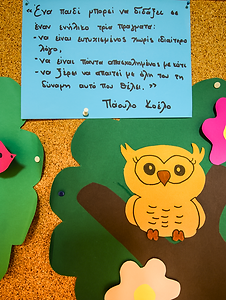 «Ένα παιδί μπορεί να διδάξει σε
έναν ενήλικο τρία πράγματα:
-να είναι ευτυχισμένος χωρίς ιδιαίτερο
λόγο,
-να είναι πάντα απασχολημένος με κάτι
-να ξέρει να απαιτεί με όλη του τη
δύναμη αυτό που θέλει.»
Πάουλο Κοέλο